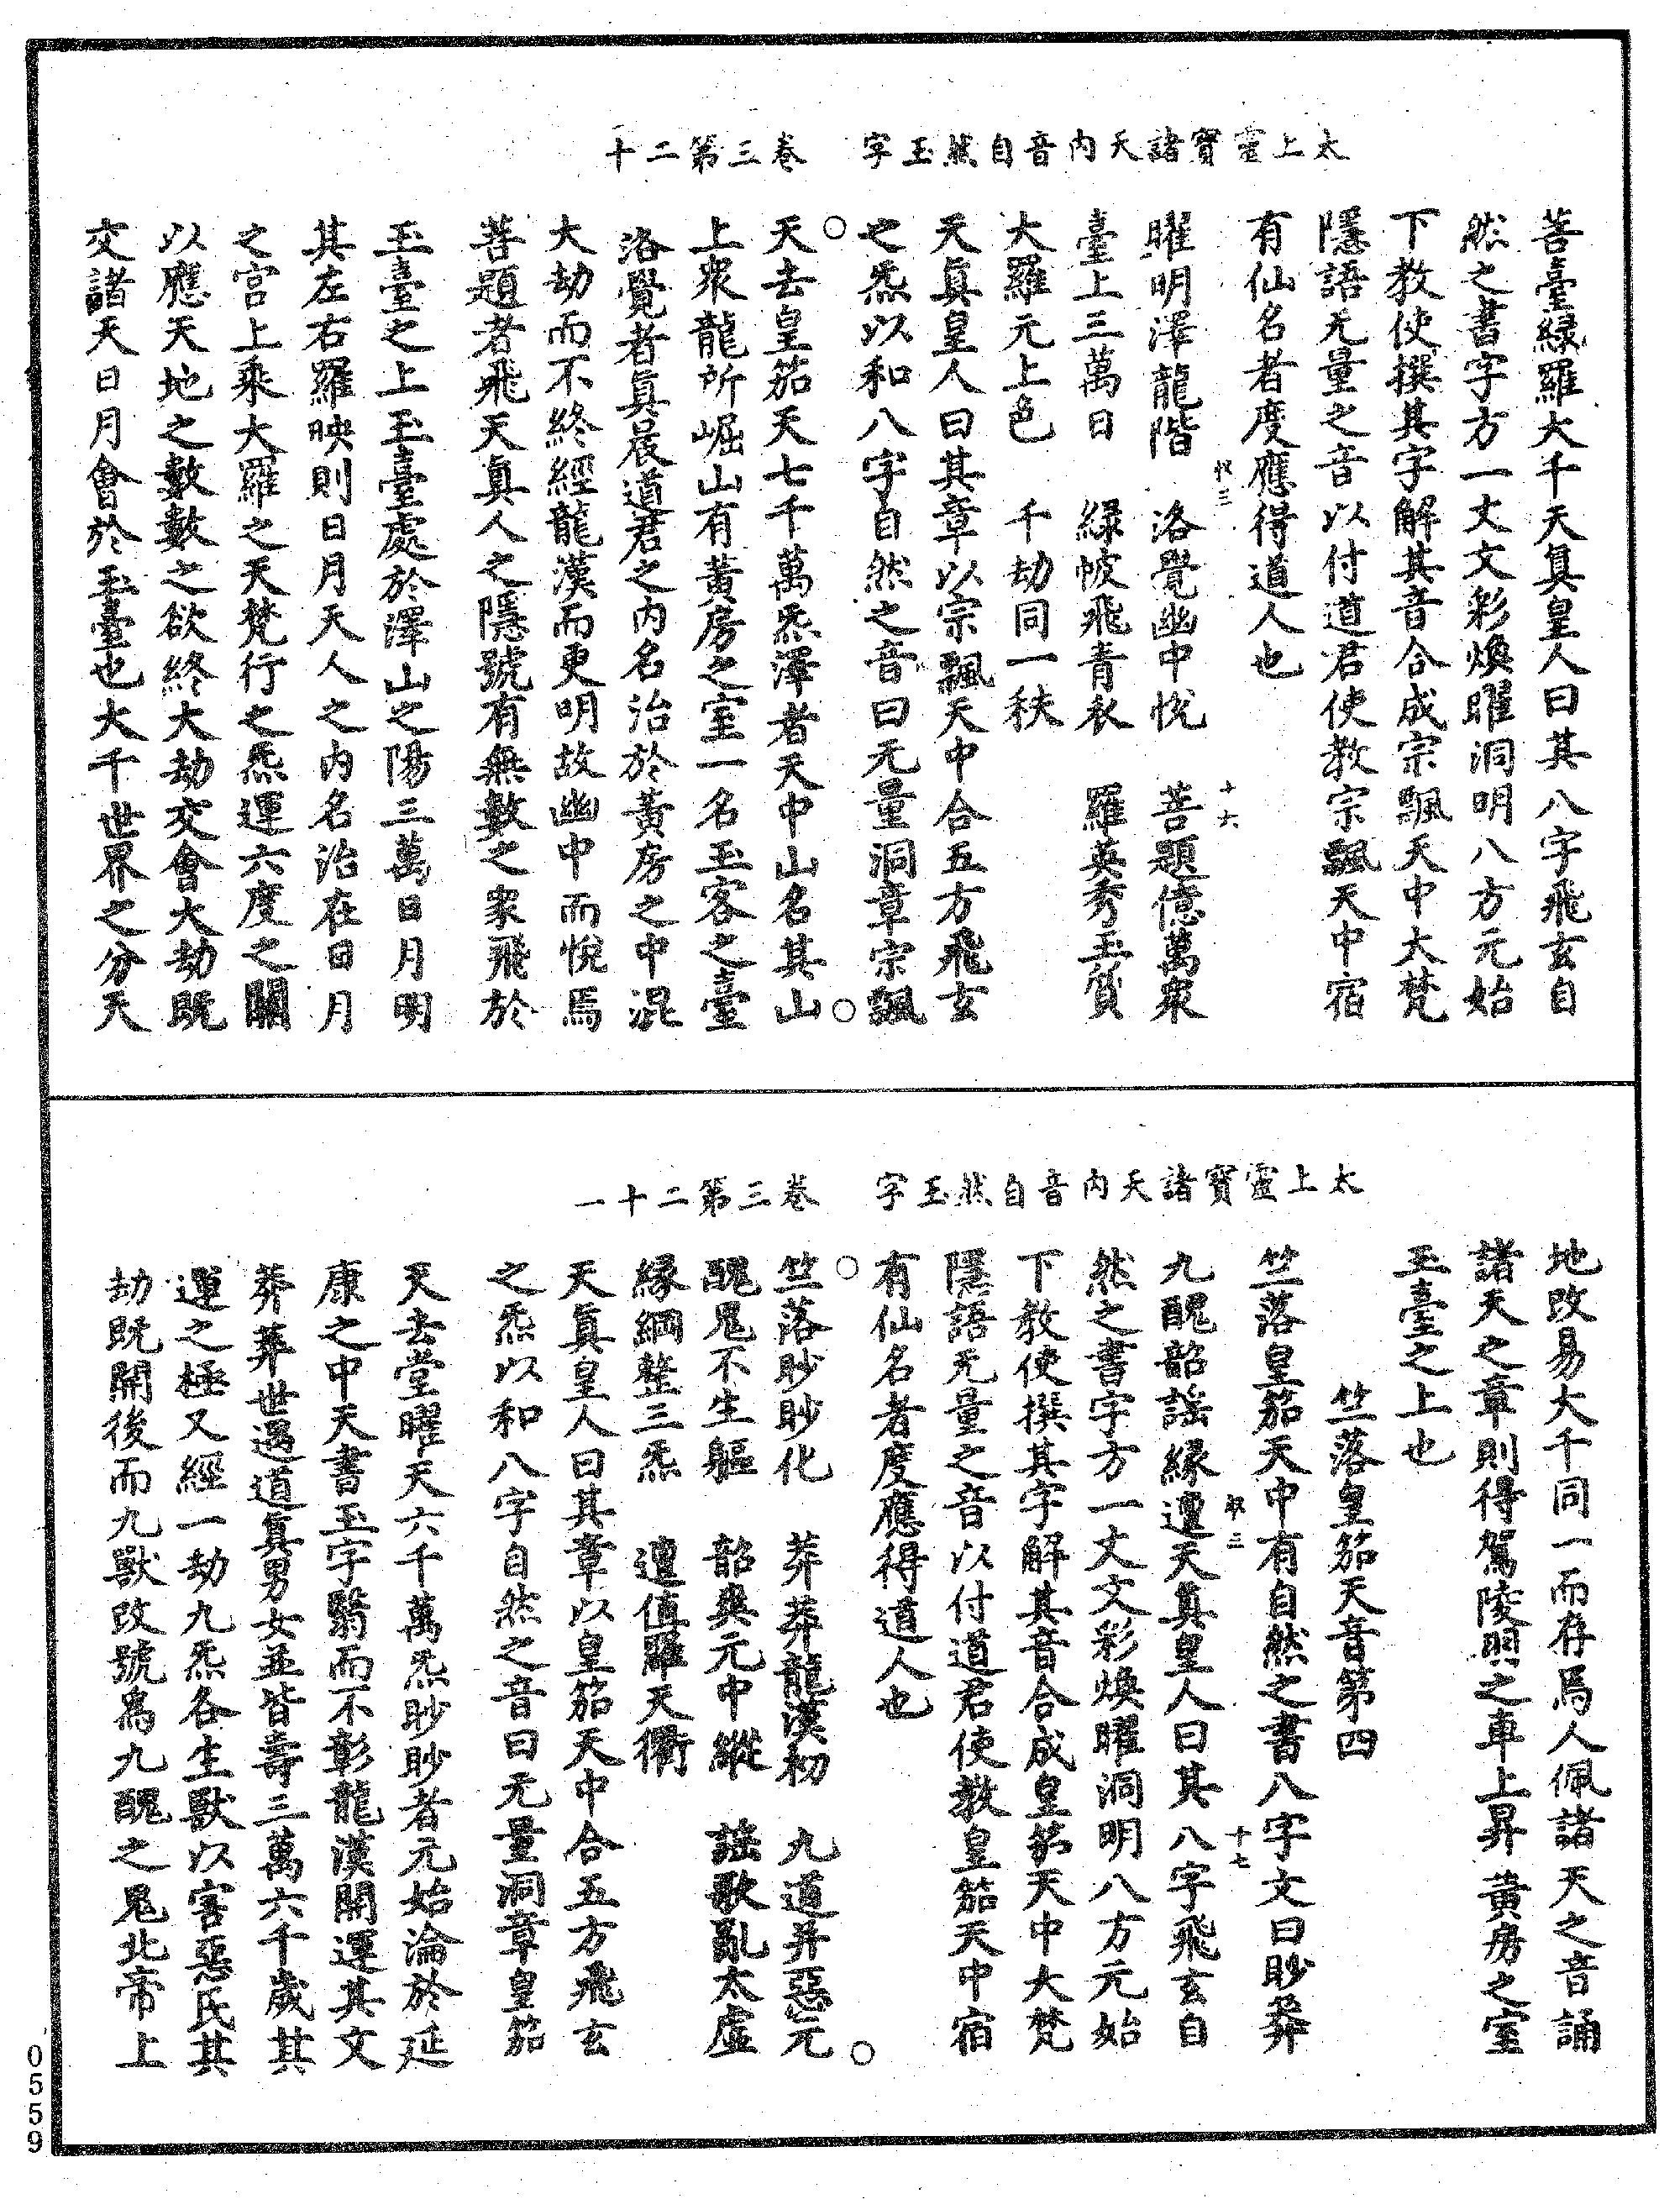 太上靈寶諸天內音自然玉字　卷三第二十
菩臺緑羅大千天真皇人曰其八字飛玄自
然之書字方一丈文彩煥曜洞明八方元始
下教使撰其字解其音合成宗飄天中大梵
隱語无量之音以付道君使教宗飄天中宿
有仙名者度應得道人也
曜明澤龍階　洛覺幽中悅　菩題億萬衆
臺上三萬日　緑帔飛青衣　羅英秀玉質
大羅元上色　千劫同一秩
天真皇人曰其章以宗飄天中合五方飛玄
之炁以和八字自然之音曰无量洞章宗飄
天去皇笳天七千萬炁澤者天中山名其山
上衆龍所崛山有黃房之室一名玉客之臺
洛覺者真晨道君之內名治於黃房之中混
大劫而不終經龍漢而更明故幽中而悅焉
菩題者飛天真人之隱號有無數之衆飛於
玉臺之上玉臺處於澤山之陽三萬日月明
其左右羅映則日月天人之內名治在日月
之宮上乘大羅之天梵行之炁運六度之關
以應天地之數數之欲終大劫交會大劫既
交諸天日月會於玉臺也大千世界之分天
太上靈寶諸天內音自然玉字　卷三第二十一
地改易大千同一而存焉人佩諸天之音誦
諸天之章則得駕陵羽之車上昇黃房之室
玉臺之上也
竺落皇笳天音第四
竺落皇笳天中有自然之書八字文曰眇莽
九醜韶謠緣邅天真皇人曰其八字飛玄自
然之書字方一丈文彩煥曜洞明八方元始
下教使撰其字解其音合成皇笳天中大梵
隱語无量之音以付道君使教皇笳天中宿
有仙名者度應得道人也
竺落眇眇化　莽莽龍漢初　九道并惡元
醜鬼不生軀　韶與元中縱　謠歌亂太虛
緣綱整三炁　邅值羅天衢
天真皇人曰其章以皇笳天中合五方飛玄
之炁以和八字自然之音曰无量洞章皇笳
天去堂曜天六千萬炁眇眇者元始淪於延
康之中天書玉字翳而不彰龍漢開運其文
莽莽世遇道真男女並皆壽三萬六千歲其
運之極又經一劫九炁各生獸以害惡民其
劫既開後而九獸改號為九醜之鬼北帝上
取三
十六
取三
十七
0559